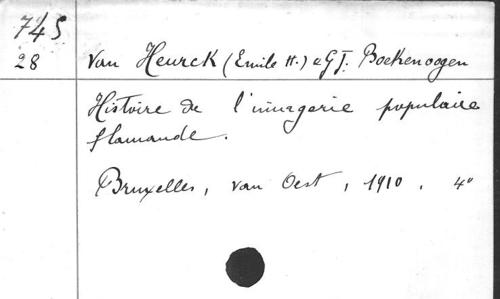 745
28 Van Heurck (Emile H.) & G J. Boekenoogen
Histoire de l'imagerie populaire
flamande.
Bruxelles, van Oest, 1910. 4°